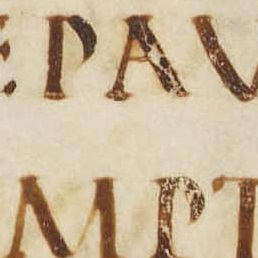 EPAV
MPT